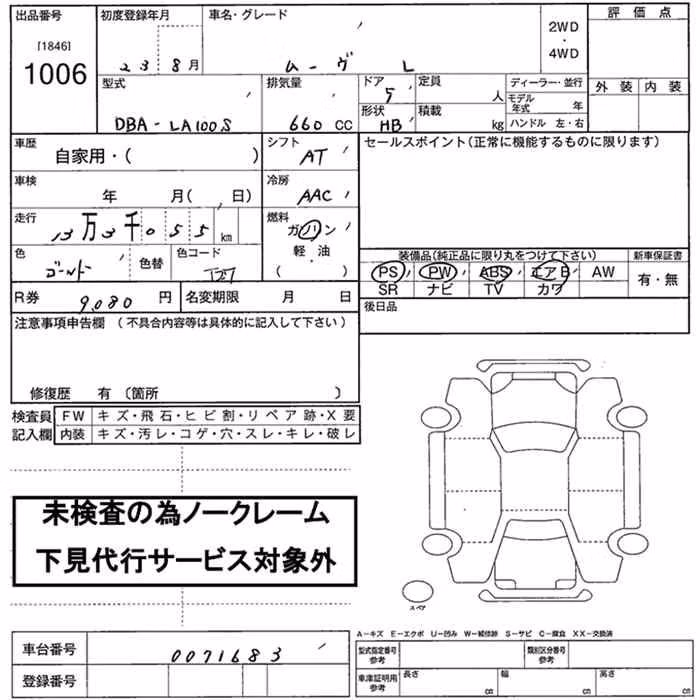 出品番号 初度登録年月 車名・グレード 評価点
[1846]
1006
23 8月 ムーヴ L 2WD・4WD
型式 排気量 ドア 定員 ディーラー・並行 外装 内装
5 人 モデル年式 年
DBA-LA100S 660 CC 形状 HB 積載 kg ハンドル 左・右
車歴 自家用・( ) シフト AT セールスポイント(正常に機能するものに限ります)
車検 年 月( 、日) 冷房 AAC
走行 13万3千055 km 燃料 ガソリン
軽・油
( )
色 ゴールド 色替 色コード T27
装備品(純正品に限り丸をつけて下さい) 新車保証書
PS PW ABS エアB AW 有・無
SR ナビ TV カワ
R券 9,080 円 名変期限 月 日 後日品
注意事項申告欄 (不具合内容等は具体的に記入して下さい)
修復歴 有 (箇所 )
検査員 FW キズ・飛石・ヒビ割・リペア跡・X要
記入欄 内装 キズ・汚レ・コゲ・穴・スレ・キレ・破レ
未検査の為ノークレーム
下見代行サービス対象外
スペア
A-キズ E-エクボ U-凹み W-補修跡 S-サビ C-腐食 XX-交換済
車台番号 0071683 型式指定番号 参考 類別区分番号 参考
登録番号 車庫証明用 参考 長さ cm 幅 cm 高さ cm